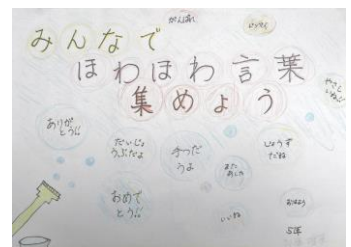 がんばれ
みんなで
ほわほわ言葉
集めよう
やさしいね
ありがとう!!
だいじょうぶだよ
手つだうよ
じょうずだね
またあした
おめでとう!!
いいね
おはよう
5年